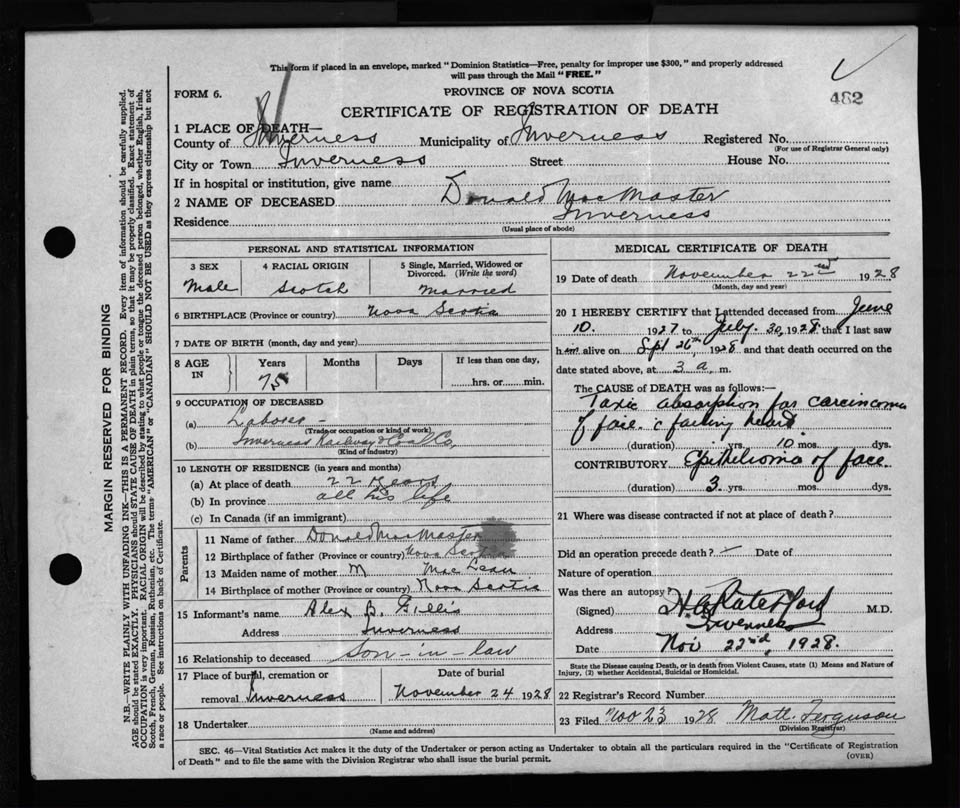 This form if placed in an envelope, marked "Dominion Statistics—Free, penalty for improper use $300," and properly addressed
will pass through the Mail "FREE."
FORM 6.
PROVINCE OF NOVA SCOTIA
482
CERTIFICATE OF REGISTRATION OF DEATH
1 PLACE OF DEATH—
County of Inverness Municipality of Inverness Registered No.
(For use of Registrar General only)
City or Town Inverness Street House No.
If in hospital or institution, give name
2 NAME OF DECEASED Donald MacMaster
Residence Inverness
(Usual place of abode)
PERSONAL AND STATISTICAL INFORMATION
3 SEX 4 RACIAL ORIGIN 5 Single, Married, Widowed or
Divorced. (Write the word)
Male Scotch Married
6 BIRTHPLACE (Province or country) Nova Scotia
7 DATE OF BIRTH (month, day and year)
8 AGE IN Years Months Days If less than one day,
75 hrs. or min.
9 OCCUPATION OF DECEASED
(a) Laborer
(Trade or occupation or kind of work)
(b) Inverness Railway & Coal Co
(Kind of industry)
10 LENGTH OF RESIDENCE (in years and months)
(a) At place of death 22 years
(b) In province all his life
(c) In Canada (if an immigrant)
Parents
11 Name of father Donald MacMaster
12 Birthplace of father (Province or country) Nova Scotia
13 Maiden name of mother M MacLean
14 Birthplace of mother (Province or country) Nova Scotia
15 Informant's name Alex B. Gillis
Address Inverness
16 Relationship to deceased son-in-law
17 Place of burial, cremation or Date of burial
removal Inverness November 24 1928
18 Undertaker
(Name and address)
MEDICAL CERTIFICATE OF DEATH
19 Date of death November 22nd 1928
(Month, day and year)
20 I HEREBY CERTIFY that I attended deceased from June
10. 1927 to July. 30, 1928. that I last saw
him alive on Sept 26th, 1928 and that death occurred on
date stated above, at 3 a. m.
The CAUSE of DEATH was as follows:—
Toxic absorption for carcinoma
of face. c failing heart.
(duration) yrs. 10 mos. dys.
CONTRIBUTORY Epithelioma of face
(duration) 3. yrs. mos. dys.
21 Where was disease contracted if not at place of death?
Did an operation precede death? Date of
Nature of operation
Was there an autopsy?
(Signed) M.D.
Address Inverness
Date Nov 22nd, 1928.
State the Disease causing Death, or in death from Violent Causes, state (1) Means and Nature of
Injury, (2) whether Accidental, Suicidal or Homicidal.
22 Registrar's Record Number
23 Filed Nov 23 1928 Matt. Ferguson
(Division Registrar)
SEC. 46—Vital Statistics Act makes it the duty of the Undertaker or person acting as Undertaker to obtain all the particulars required in the "Certificate of Registration
of Death" and to file the same with the Division Registrar who shall issue the burial permit.
(OVER)
MARGIN RESERVED FOR BINDING
N.B.—WRITE PLAINLY WITH UNFADING INK—THIS IS A PERMANENT RECORD. Every item of information should be carefully supplied.
AGE should be stated EXACTLY. PHYSICIANS should STATE CAUSE OF DEATH in plain terms, so that it may be properly classified. Exact statement of
OCCUPATION is very important. RACIAL ORIGIN will be described by stating to what people or tongue the deceased person belonged, whether English, Irish,
Scotch, French, German, Russian, Ruthenian, etc. The terms "AMERICAN" or "CANADIAN" SHOULD NOT BE USED as they express citizenship but not
a race or people. See instructions on back of Certificate.